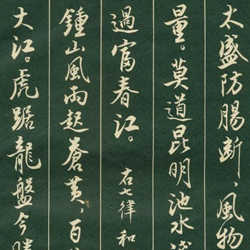 太盛防腸斷，風物
量。莫道昆明池水
過富春江。 右律和
鍾山風雨起蒼黃，百
大江。虎踞龍盤今勝